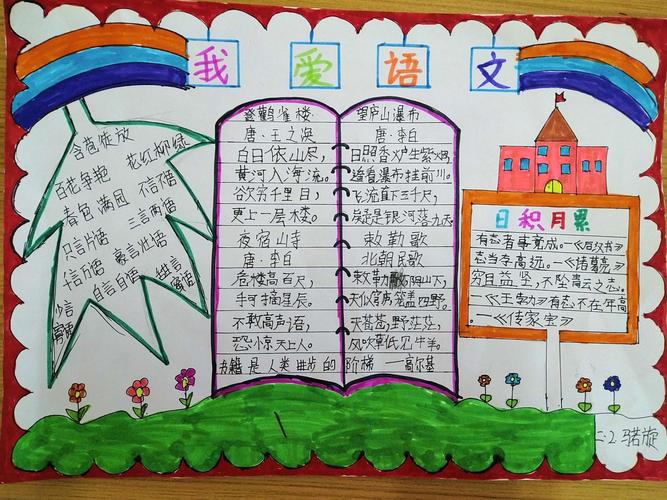 我爱语文
含苞绽放
花红柳绿
百花争艳
不言不语
春色满园
三言两语
只言片语
千言万语
豪言壮语
自言自语
登鹳雀楼
唐·王之涣
白日依山尽,
黄河入海流。
欲穷千里目,
更上一层楼。
夜宿山寺
唐·李白
危楼高百尺,
手可摘星辰。
不敢高声语,
恐惊天上人。
望庐山瀑布
唐·李白
日照香炉生紫烟,
遥看瀑布挂前川。
飞流直下三千尺,
疑是银河落九天。
敕勒歌
北朝民歌
敕勒川阴山下,
天似穹庐笼盖四野。
天苍苍,野茫茫,
风吹草低见牛羊。
书籍是人类进步的阶梯 —高尔基
日积月累
有志者事竟成。—《后汉书》
志当存高远。—《诸葛亮》
穷且益坚,不坠青云之志。
—《王勃》有志不在年高
—《传家宝》
二.2 骆旋